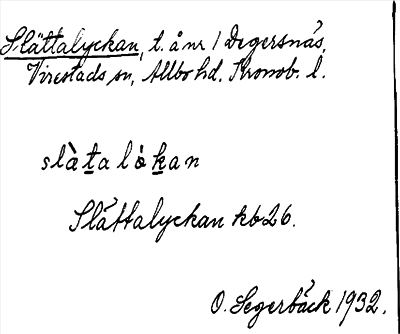 Slättalyckan, t. å nr 1 Degersnäs,
Virestads sn, Allbo hd, Kronob. l.
slàta lò̇kan
Slättalyckan kb 26.
O. Segerbäck 1932.